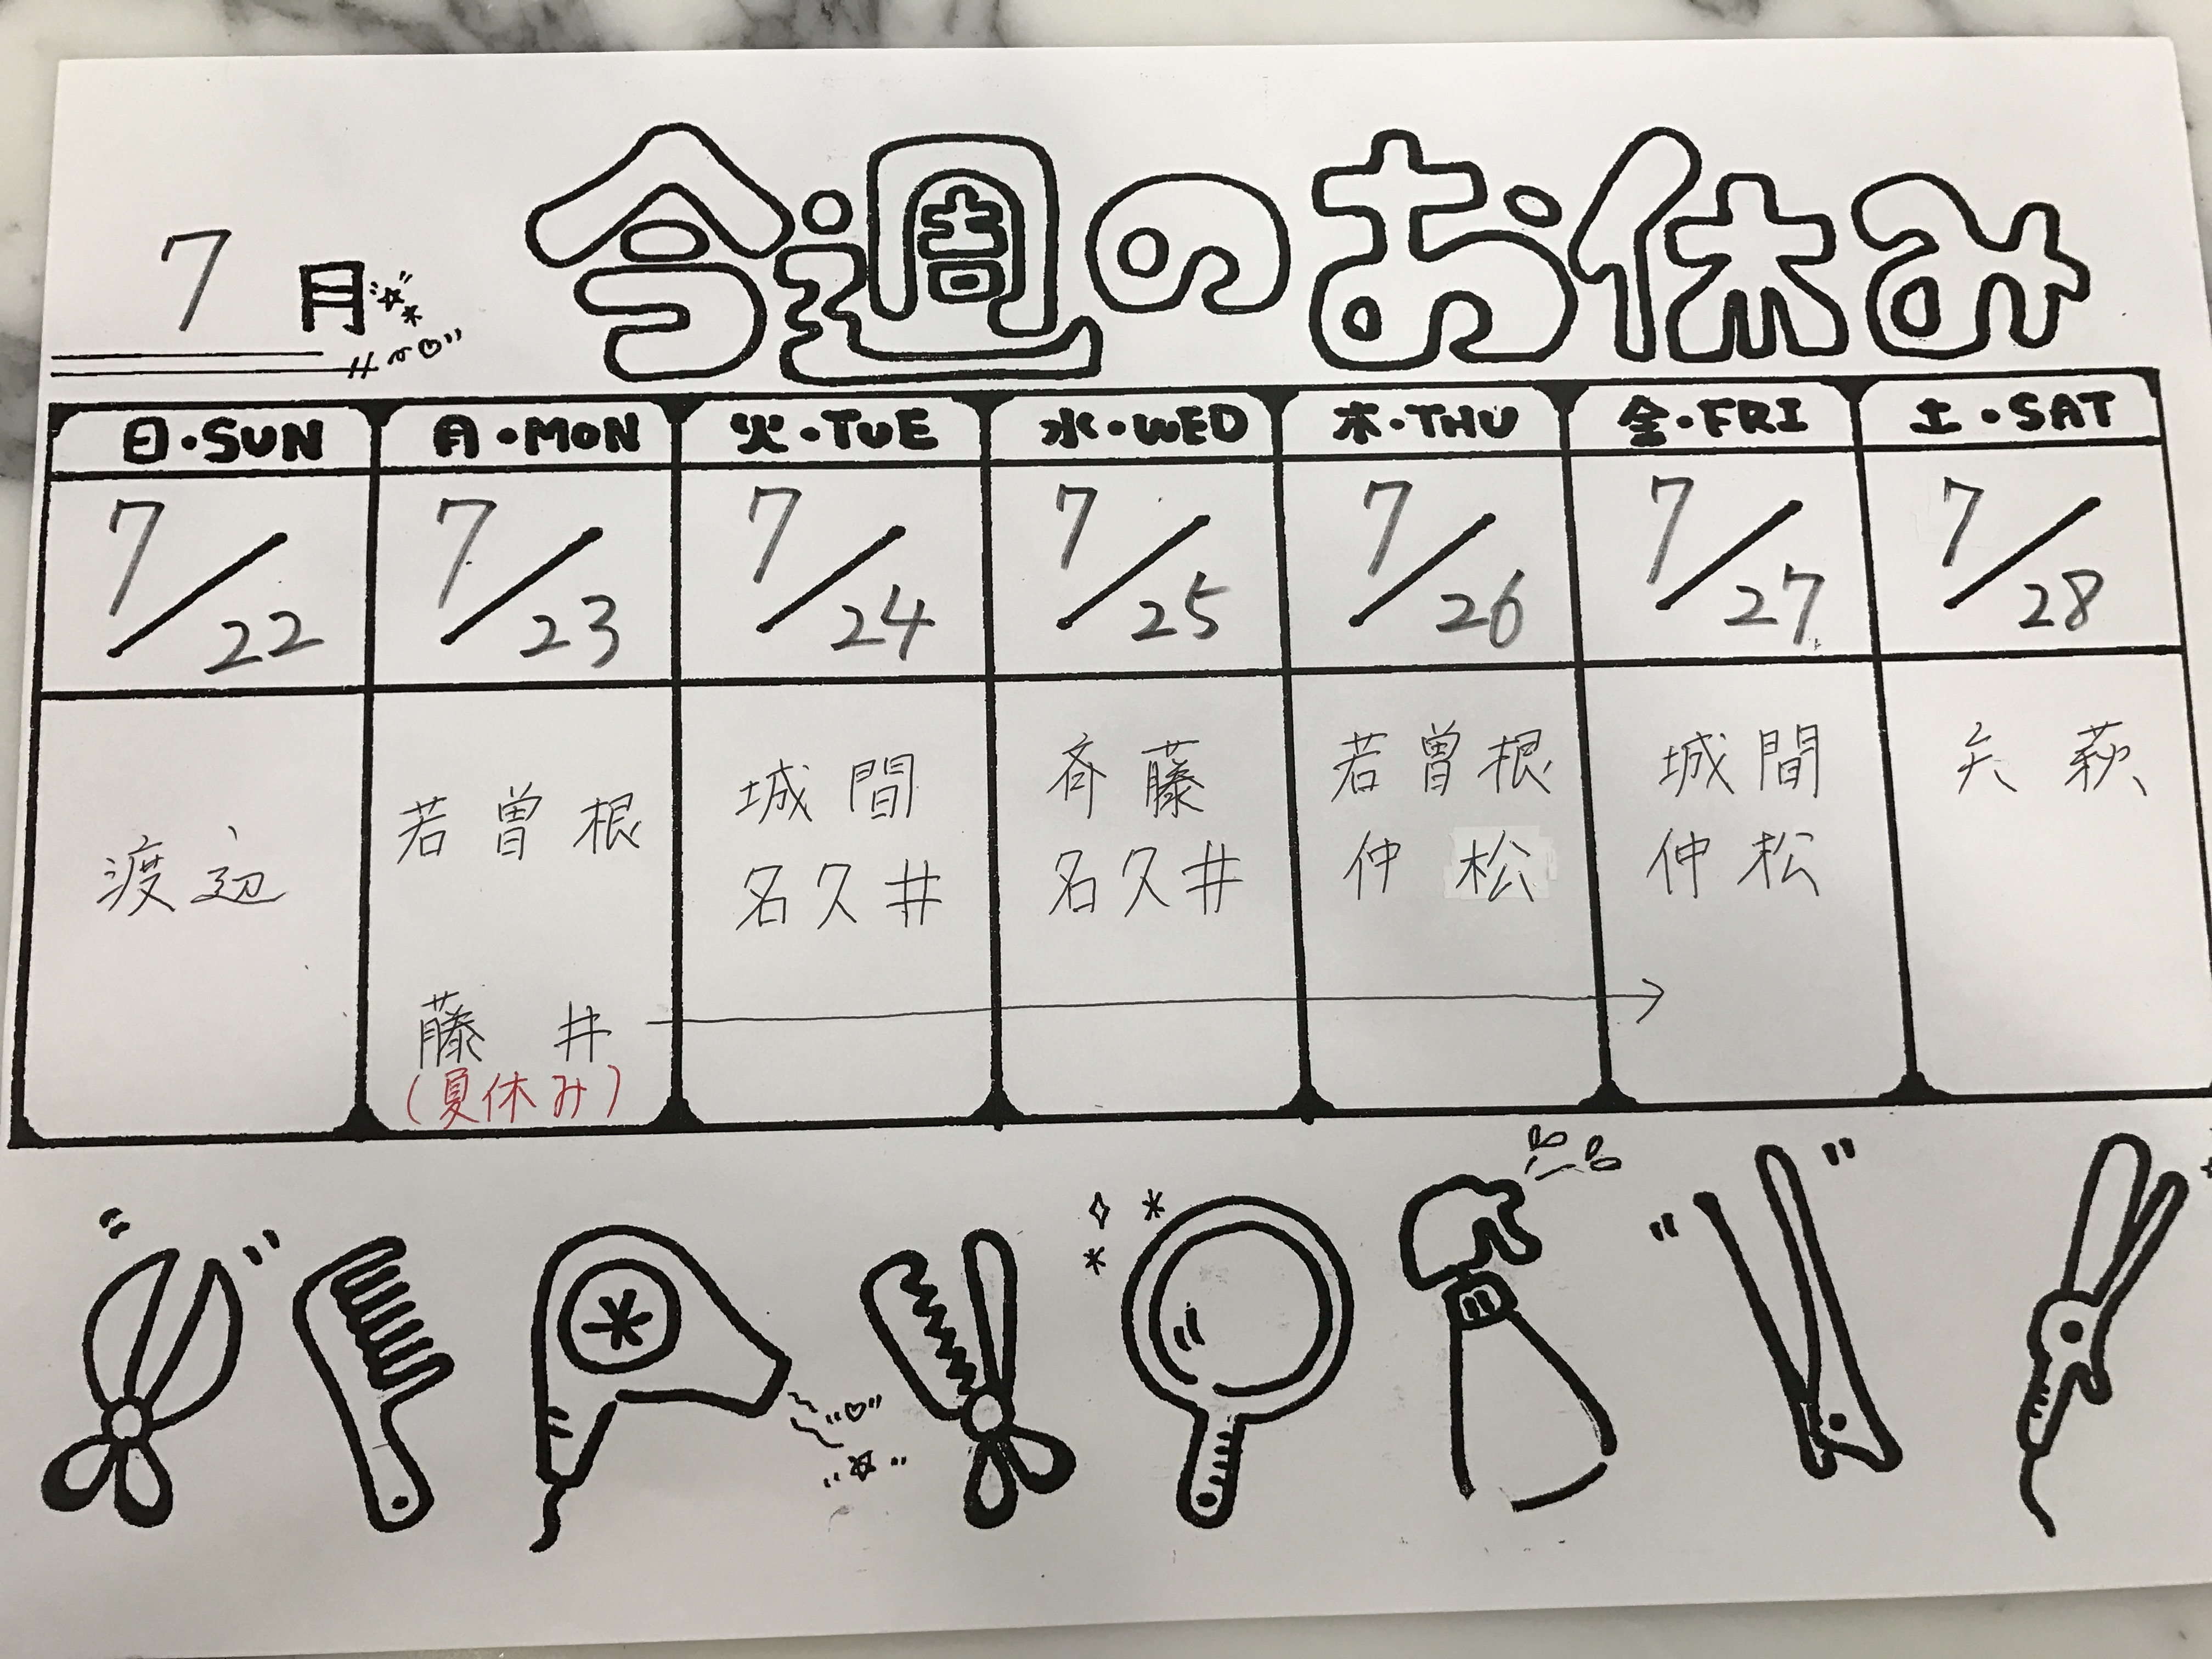 7月
今週のお休み
日・SUN 月・MON 火・TUE 水・WED 木・THU 金・FRI 土・SAT
7/22 7/23 7/24 7/25 7/26 7/27 7/28
渡辺
若曽根
藤井
(夏休み)
城間
名久井
斉藤
名久井
若曽根
仲松
城間
仲松
矢萩